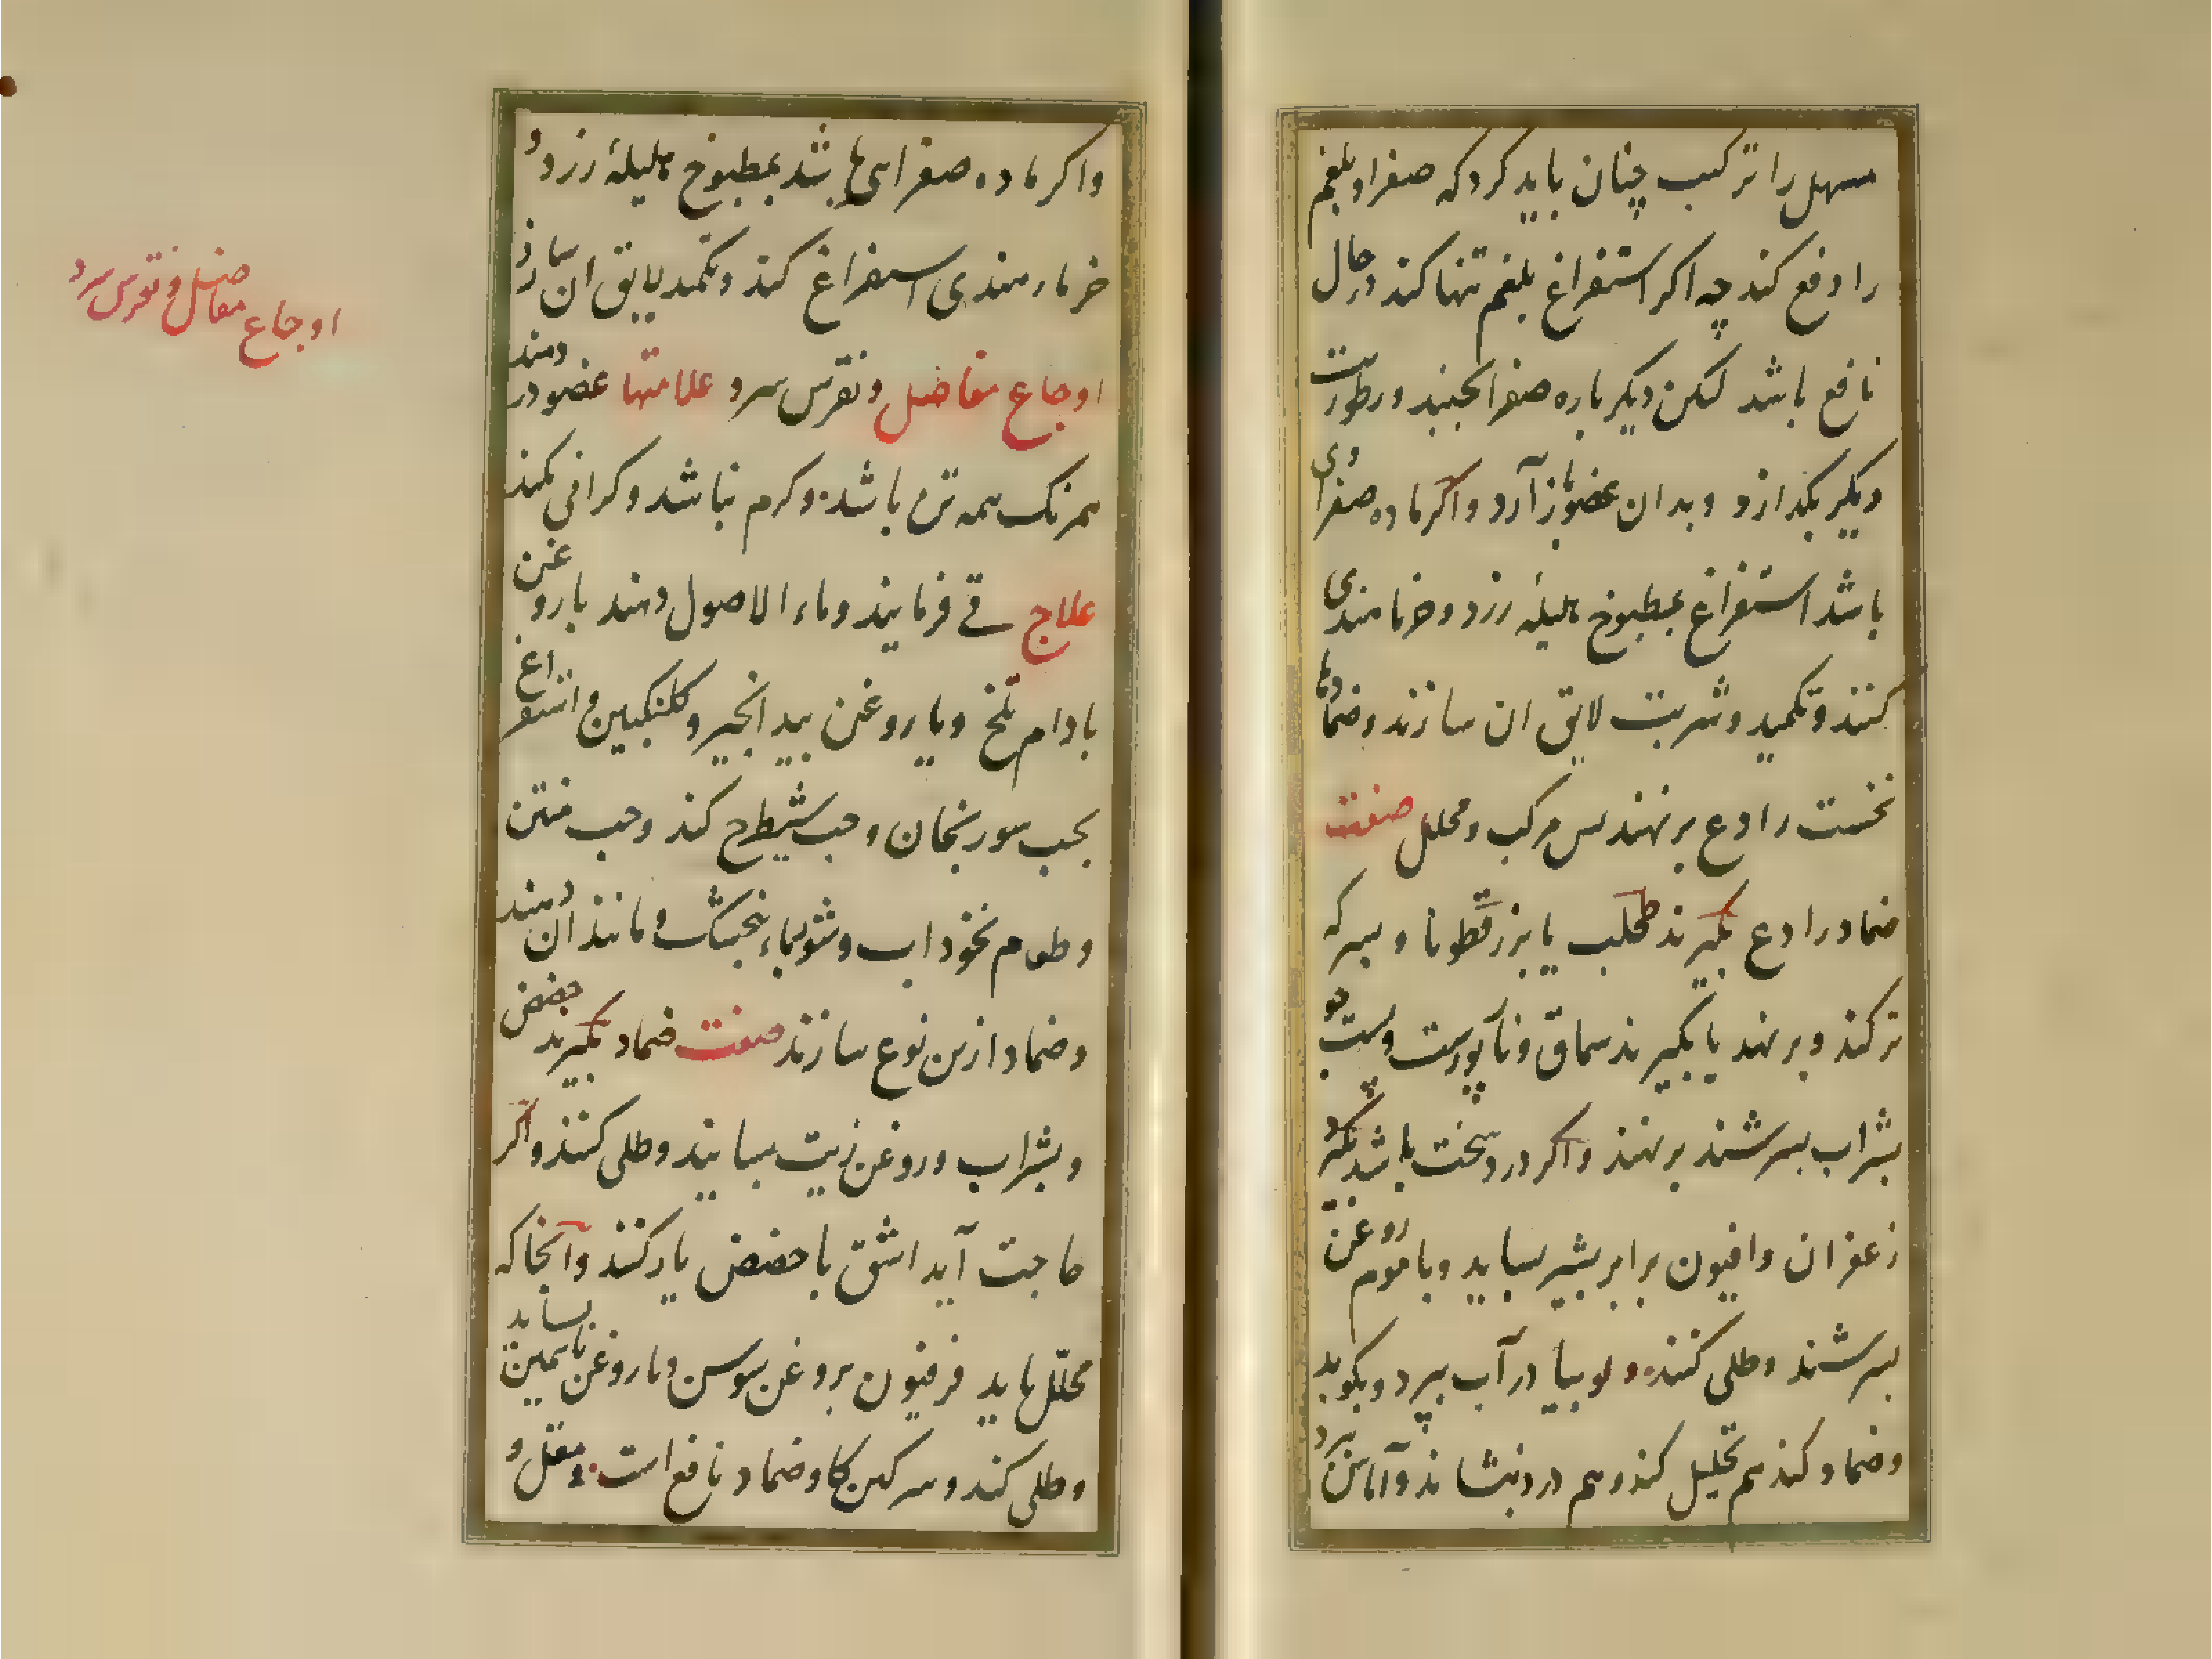 مسهل را ترکیب چنان باید کرد که صفرا و بلغم
را دفع کند چه اکر استفراغ بلغم تنها کند در حال
نافع باشد لکن دیکر باره صفرا بجنبد و رطوبت
دیکر بکدازد و بدان عضو باز آرد و اکر ماده صفراوی
باشد استفراغ بمطبوخ هلیلهٔ زرد و خرما هندی
کنند و تکمید و شربت لایق ان سازند و ضمادها
نخست رادع برنهند پس مرکب و محلل صفت
ضماد رادع بکیرند طحلب یا بزرقطونا و بسرکه
تر کند و برنهد یا بکیرند سماق و نار پوست و پست جو
بشراب بسرشند برنهند و اکر درد سخت باشد بکیرد
زعفران و افیون برابر بشیر بساید و با موم روغن
بسرشند و طلی کنند و لوبیا در آب بپزد و بکوبد
و ضماد کند هم تحلیل کند و هم درد بنشاند و آماس ببرد
واکر ماده صفرایی باشد بمطبوخ هلیلهٔ زرد و
خرما هندی استفراغ کند و تکمید لایق ان سازند
اوجاع مفاصل و نقرس سرد علامتها عضو دردمند
همرنک همه تن باشد و کرم نباشد و کرانی کند
علاج قی فرمایند و ماء الاصول دهند با روغن
بادام تلخ و یا روغن بید انجیر و کلنکبین و استفراغ
بحب سورنجان و حب شیطرج کند و حب منتن
و طعام نخوداب و شوربای بنجشک و مانند ان دهند
و ضماد ازین نوع سازند صفت ضماد بکیرند حضض
و بشراب و روغن زیت بسایند و طلی کنند و اکر
حاجت آید اشق با حضض یار کنند و آنجا که
محلّل باید فرفیون بروغن سوسن و یا روغن یاسمین بساید
و طلی کند و سرکین کاو ضماد نافع است و مقل و
اوجاع مفاصل و نقرس سرد